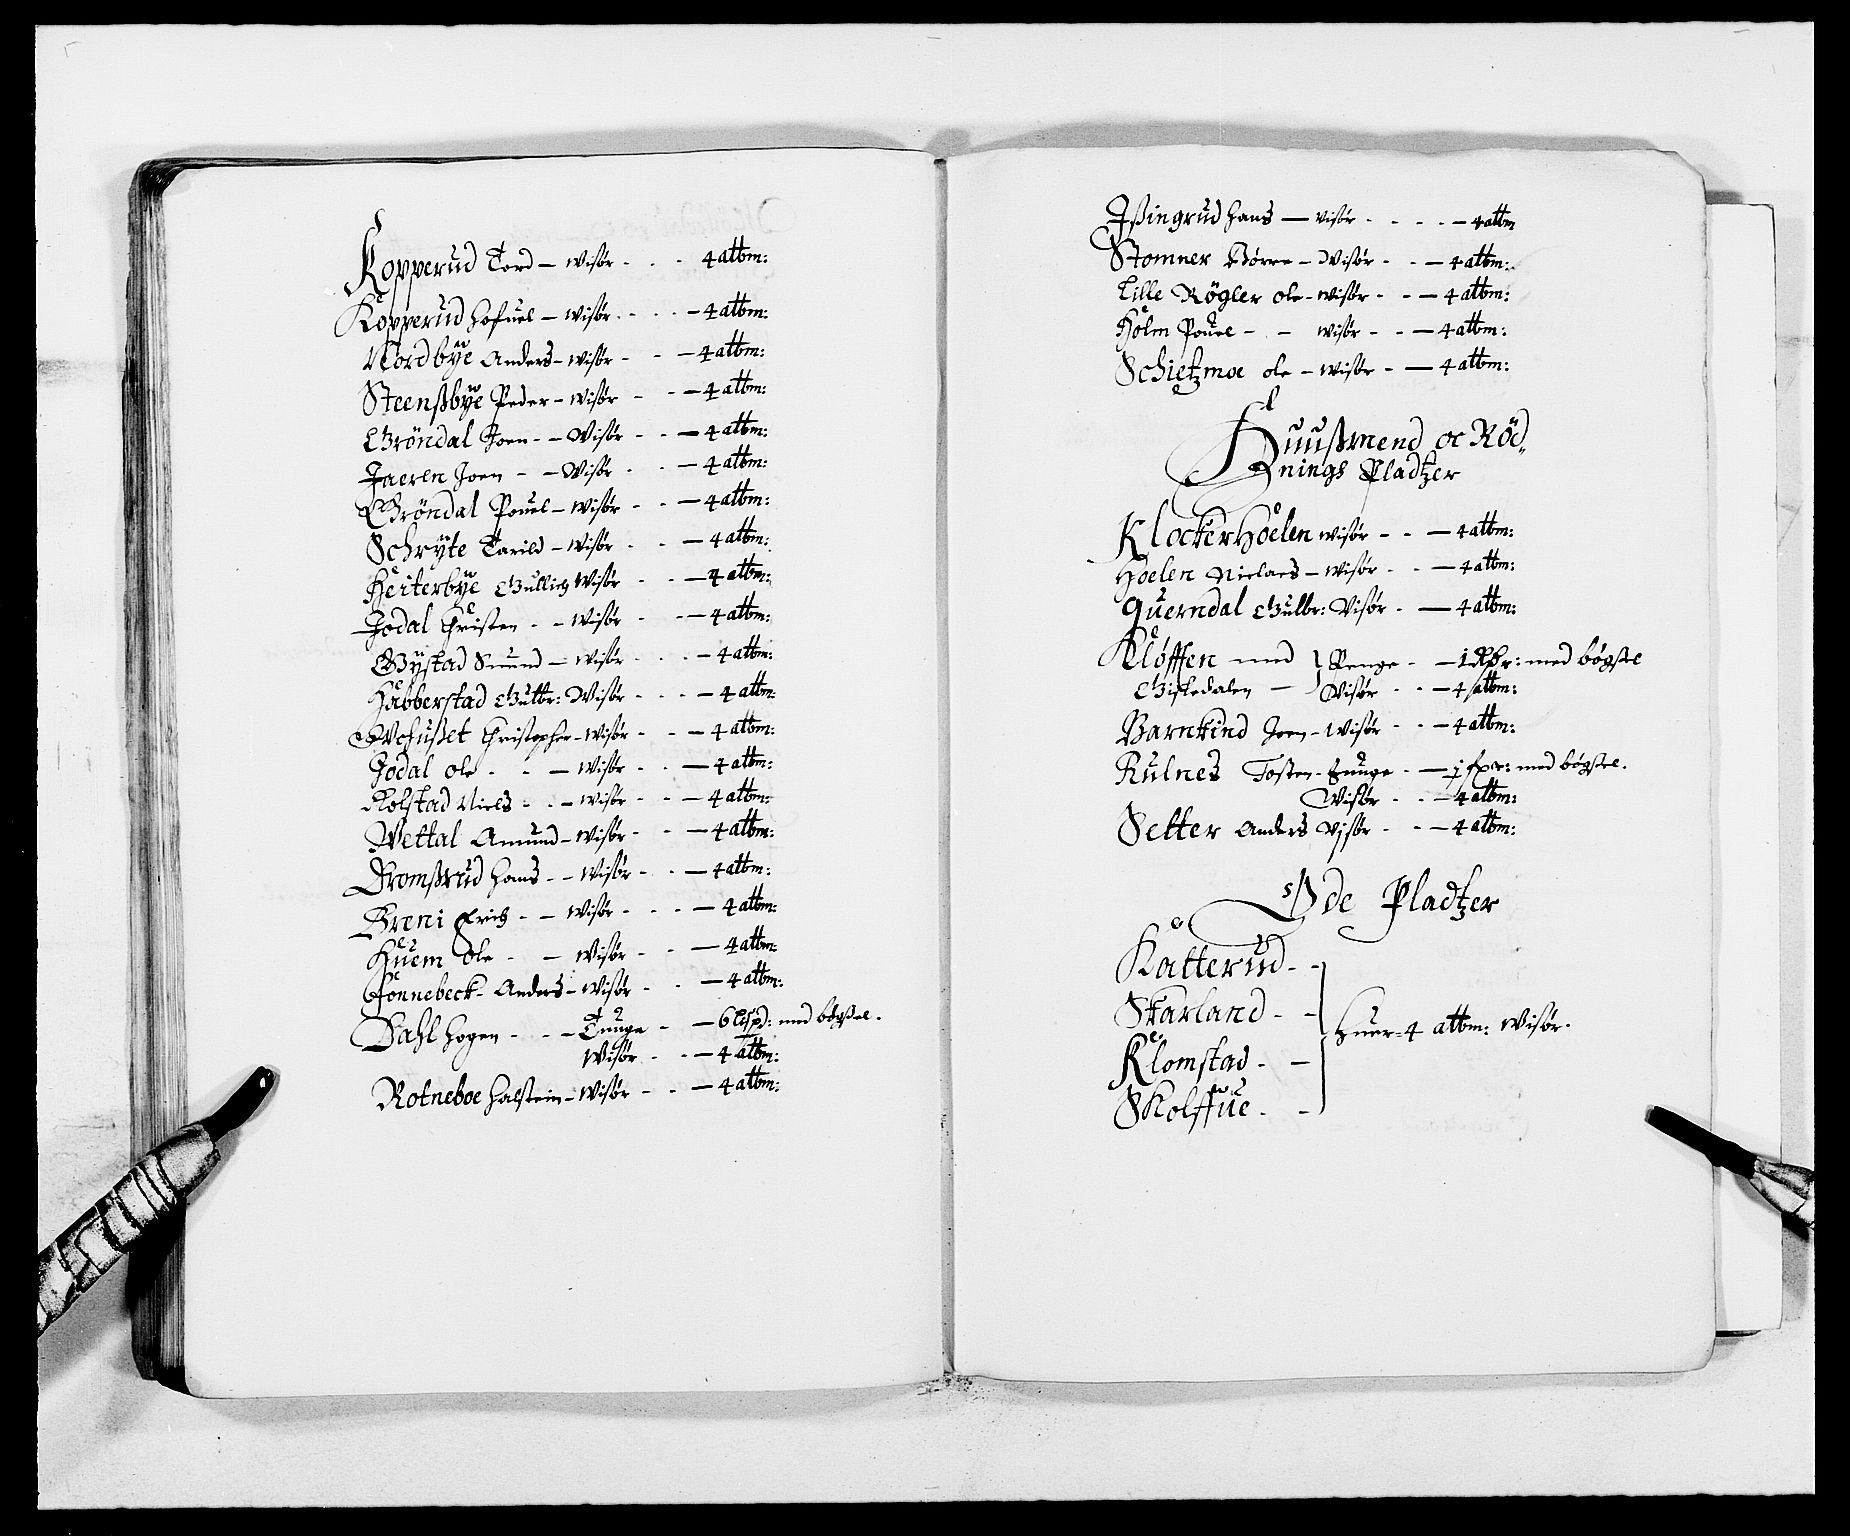 Kopperud Tord – Wisør - - - 4 attm:
Kopperud Hofuel – Wisør - - - – 4 attm:
Nordbÿe Anders – Wisør - - – 4 attm:
Steenßbÿe Peder – Wisør - - – 4 attm:
Gröndal Joen - – Wisør - - – 4 attm:
Jaeren Joen - – Wisør - - – 4 attm:
Gröndal Pouel – Wisør - - – 4 attm:
Schrÿte Tarild – Wisør - - – 4 attm:
Heiterbÿe Gullich Wisør - - – 4 attm:
Jodal Christen - – Wisør - - – 4 attm:
Gÿstad Suend – Wisør - - - – 4 attm:
Habberstad Gulbr: Wisør - - - – 4 attm:
Christopher – Wisør - - – 4 attm:
Jodal Ole - - – Wisør - - – 4 attm:
Kolstad Niels - - – Wisør - - – 4 attm:
Wettal Amund – Wisør - - – 4 attm:
Dromßrud Hans - – Wisør - - – 4 attm:
Breni Erich - – Wisør - - - – 4 attm:
Huem Ole - – Wisør - - – 4 attm:
Fonnebeck - Anders – Wisør - - – 4 attm:
Dahl Hogen - - – Tunge - – 6 lispd: med bøgsel.
Wisør - - – 4 attm:
Rotneboe Halstein – Wisør - - – 4 attm:
Ißingrud Hans – Wisør - - - - – 4 attm
Stomner Børre – Wisør - - – 4 attm:
Lille Røgler Ole – Wisør - - – 4 attm:
Holm Pouel - - Wisør - - – 4 attm:
Schietzmoe Ole – Wisør - – 4 attm:
Huußmend oc Röd„
nings Pladtzer
Klocker Hoelen Wisør - - – 4 attm:
Hoelen Nielaes – Wisør - - – 4 attm:
Querndal Gulbr: Wisør - – 4 attm:
Kløffen med } Penge - – 1 Rdr: med bögsel
Gistedalen – Wisør - - – 4 attm:
Barnkind Joen – Wisør - - – 4 attm:
Rulnes Tosten - - – 1 med bøgsel.
Wisør - - – 4 attm:
Setter Anders Wisør - - – 4 attm:
Øde Pladtzer
Katterud - -
Skarland - -
Huer - 4 attm: Wisør.
Klomstad - –
Skolffue - -